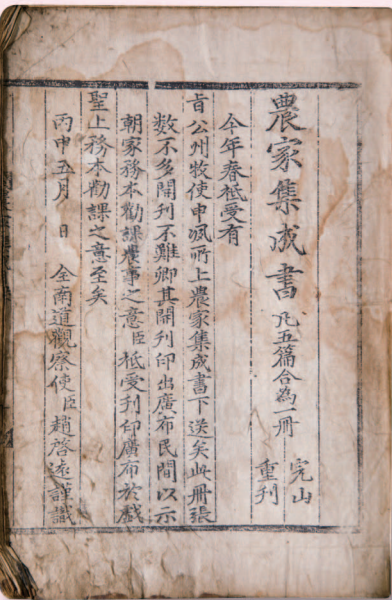 農家集成書 凡五篇合為一冊 完山重刊
今年春祗受有
旨公州牧使申洬所上農家集成書下送矣此冊張
数不多開刊不難卿其開刊印出廣布民間以示
朝家務本勸課農事之意臣祗受刊印廣布於戲
聖上務本勸課之意至矣
丙申五月 日 全南道觀察使臣趙啓遠謹識